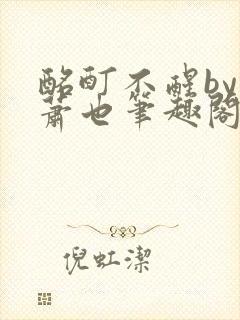 酩酊不醒by
萧也笔趣阁
倪虹洁